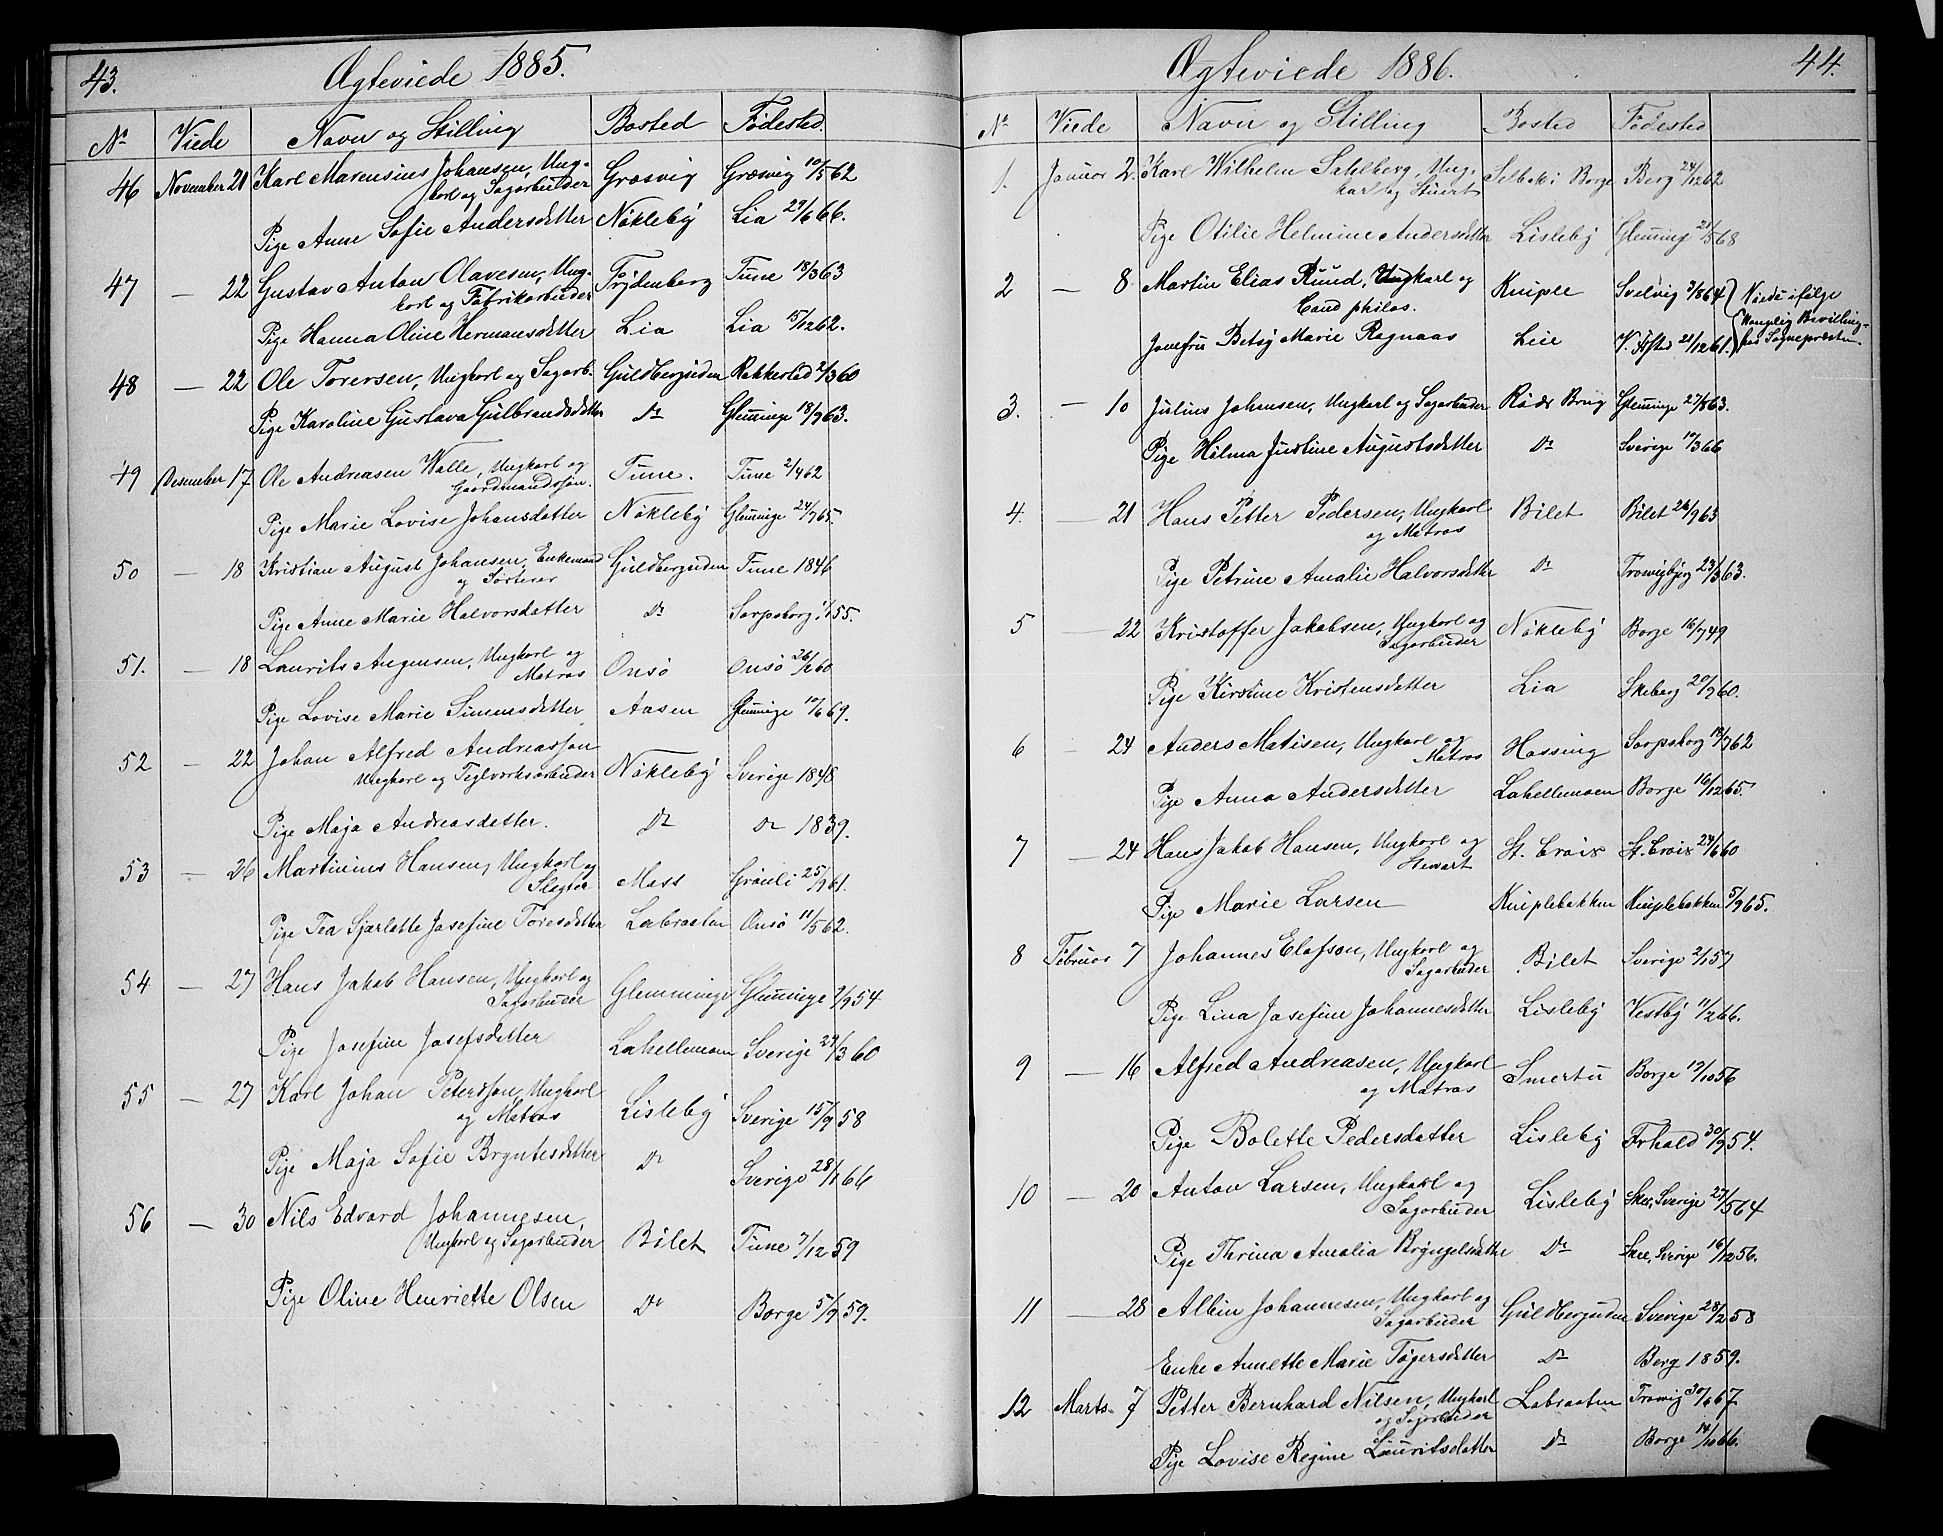 43. Ægteviede 1885.
No Viede Navn og Stilling Bosted Fødested
46 November 21 Karl Marensius Johansen, Ung- Græsvig Græsvig 10/5 62
karl og Sagarbeider
Pige Anne Sofie Andersdatter Nökleby Lia 29/6 66.
47 — 22 Gustav Anton Olavesen, Ung- Trÿdenborg Tune 18/3 63
karl og Fabrikarbeider
Pige Hanna Oline Hermansdatter Lia Lia 15/12 62.
48 — 22 Ole Torersen, Ungkarl og Sagarb. Guldbergsiden Rakkestad 2/3 60
Pige Karoline Gustava Gulbrandsdatter Do Glemminge 18/9 63.
49 Desember 17 Ole Andreasen Walle, Ungkarl og Tune. Tune 2/4 62
Gaardmandssön.
Pige Marie Lovise Johansdatter Nökleby Glemminge 24/7 65.
50 — 18 Kristian August Johansen, Enkemand Guldbergsiden Tune 1846
og Sorterer
Pige Anne Marie Halvorsdatter Do Sarpsborg 1/1 55.
51. — 18 Laurits Augensen, Ungkarl og Onsö Onsö 26/12 60
Matros
Pige Lovise Marie Simensdatter Aasen Glemminge 10/6 69.
52 — 22 Johan Alfred Andreasson Nökleby Sverige 1848
Ungkarl og Teglverksarbeider
Pige Maja Andreasdatter. Do Do 1839.
53 — 26 Martinius Hansen, Ungkarl og Moss Grönli 25/9 61.
Slagter
Pige Tea Sjarlotte Josefine Toresdatter Labraaten Onsö 11/5 62.
54 — 27 Hans Jakob Hansen, Ungkarl og Glemminge Glemminge 7/9 54
Sagarbeider
Pige Josefine Josefsdatter Lahellemoen Sverige 29/3 60
55 — 27 Karl Johan Petersson, Ungkarl Lisleby Sverige 15/9 58
og Matros
Pige Maja Sofie Bryntesdatter Do Sverige 28/1 66
56 — 30 Nils Edvard Johannesen, Bilet Tune 7/12 59
Ungkarl og Sagarbeider
Pige Oline Henriette Olsen Do Borge 5/9 59.
Ægteviede 1886. 44.
No Viede Navn og Stilling Bosted Fødested
1. Januar 2. Karl Wilhelm Sahlberg, Ung- Selbak i Borge Berg 24/12 62
karl og Stuert
Pige Otilie Helmine Andersdatter Lisleby Glemminge 21/5 68
2 — 8 Martin Elias Ruud, Ungkarl og Kniple Svelvig 3/8 64 Viede ifølge
Cand philos. Kongelig Bevilling
Jomfru Betsy Marie Ragnaas Leie 21/12 61. hos Sognepresten.
3. — 10 Julius Johansen, Ungkarl og Sagarbeider Röds Brug Glemminge 27/8 63.
Pige Hilma Justine Augustsdatter Do Sverige 19/3 66
4. — 21 Hans Petter Pedersen, Ungkarl Bilet Bilet 26/9 63
og Matros
Pige Petrine Amalie Halvorsdatter Do 23/3 63.
5 — 22 Kristoffer Jakobsen, Ungkarl og Nökleby Borge 16/7 49
Sagarbeider
Pige Kirstine Kristensdatter Lia Skeberg 20/9 60.
6 — 24 Anders Matisen, Ungkarl og Hassing Sarpsborg 19/7 62
Matros
Pige Anna Andersdatter Lahellemoen Borge 16/12 65.
7 — 24 Hans Jakob Hansen, Ungkarl og St. Croix St. Croix 24/6 60
Stewart
Pige Marie Larsen Kniplebakken Kniplebakken 5/9 65.
8 Februar 7 Johannes Elofson, Ungkarl og Bilet Sverige 2/1 57
Sagarbeider
Pige Lina Josefine Johannesdatter Lisleby Vestby 11/2 66.
9 — 16 Alfred Andreasen, Ungkarl Smertu Borge 19/10 56
og Matros
Pige Bolette Pedersdatter Lisleby Frhald 30/9 54.
10 — 20 Anton Larsen, Ungkarl og Lisleby Skee, Sverige 27/5 64
Sagarbeider
Pige Thrina Amalia Bryngelsdatter Do Skee, Sverige 16/12 56.
11 — 28 Albin Johannesen, Ungkarl og Guldbergsiden Sverige 28/2 58
Sagarbeider
Enke Annette Marie Tögersdatter Do Berg 1859.
12 Marts 7 Petter Bernhard Nilsen, Ungkarl Labraaten Tromig 30/6 67
og Sagarbeider
Pige Lovise Regine Lauritsdatter Do Borge 14/10 66.